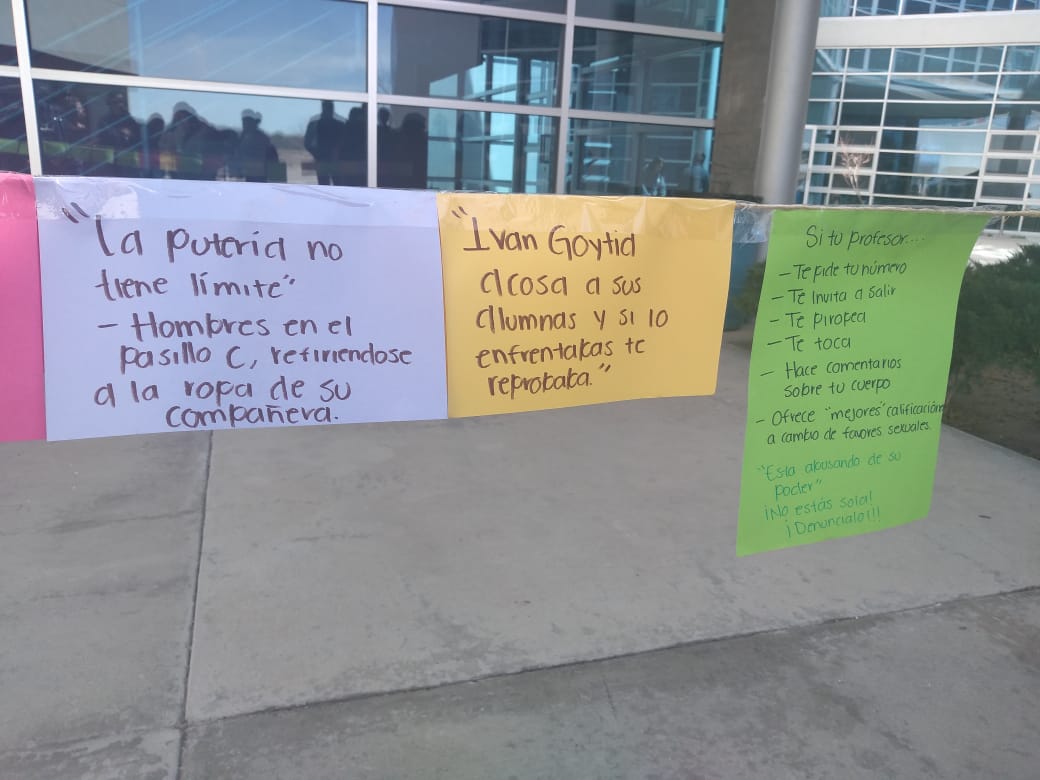 "La putería no
tiene límite"
- Hombres en el
pasillo C, refiriendose
a la ropa de su
compañera.
"Ivan Goytia
acosa a sus
alumnas y si lo
enfrentabas te
reprobaba."
Si tu profesor....
- Te pide tu número
- Te invita a salir
- Te piropea
- Te toca
- Hace comentarios
sobre tu cuerpo
- Ofrece "mejores" calificación
a cambio de favores sexuales.
"Esta abusando de su
poder"
¡No estás sola!
¡Denuncialo!!!